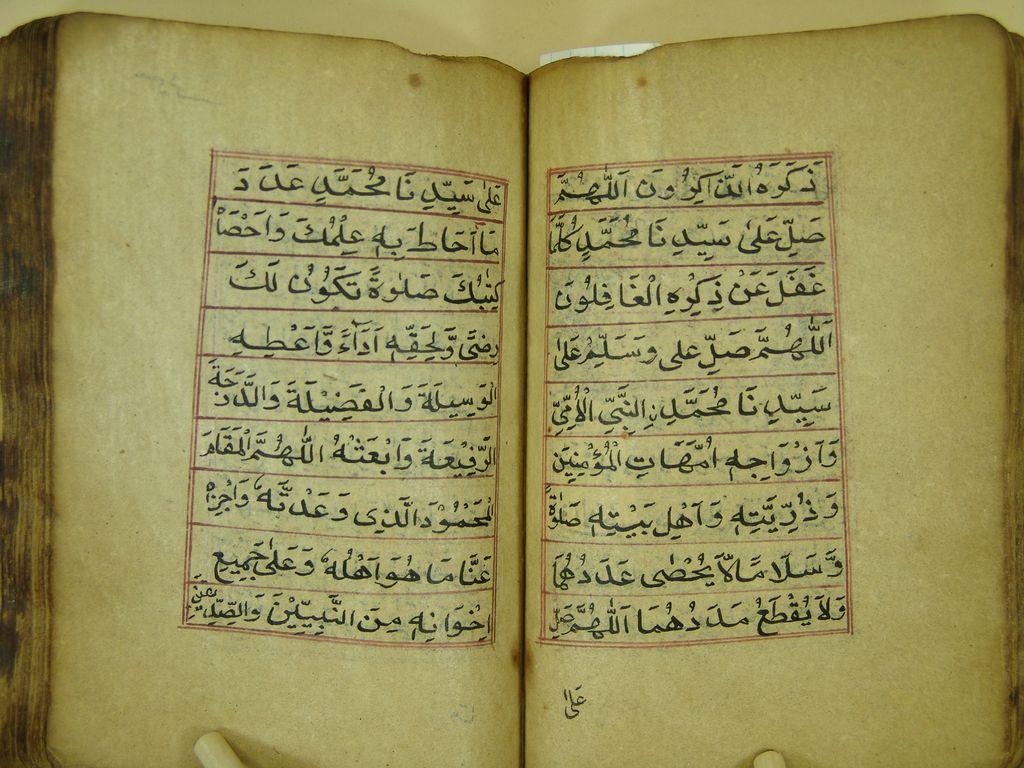 ذَكَرَهُ الذَّاكِرُونَ اَللّٰهُمَّ
صَلِّ عَلىٰ سَيِّدِنَا مُحَمَّدٍ كُلَّمَا
غَفَلَ عَنْ ذِكْرِهِ الْغَافِلُونَ
اَللّٰهُمَّ صَلِّ على وَسَلِّمْ عَلىٰ
سَيِّدِنَا مُحَمَّدِ نِ النَّبِيِّ الْاُمِّيِّ
وَاَزْوَاجِهٖ اُمَّهَاتِ الْمُؤْمِنِيْنَ
وَذُرِّيَّتِهٖ وَاَهْلِ بَيْتِهٖ صَلٰوةً
وَّسَلَامًا لَّا يُحْصٰى عَدَدُهُمَا
وَلَا يُقْطَعُ مَدَدُهُمَا اَللّٰهُمَّ صَلِّ
عَلىٰ
عَلىٰ سَيِّدِنَا مُحَمَّدٍ عَدَدَ
مَا اَحَاطَ بِهٖ عِلْمُكَ وَاَحْصَاهُ
كِتٰبُكَ صَلٰوةً تَكُوْنُ لَكَ
رِضًى وَّلِحَقِّهٖ اَدَآءً وَّاَعْطِهِ
الْوَسِيلَةَ وَالْفَضِيْلَةَ وَالدَّرَجَةَ
الرَّفِيْعَةَ وَابْعَثْهُ اللّٰهُمَّ الْمَقَامَ
الْمَحْمُوْدَ الَّذِى وَعَدْتَّهٗ وَاجْزِهٖ
عَنَّا مَا هُوَ اَهْلُهٗ وَعَلىٰ جَمِيْعِ
اِخْوَانِهٖ مِنَ النَّبِيِّيْنَ وَالصِّدِّيْقِيْنَ